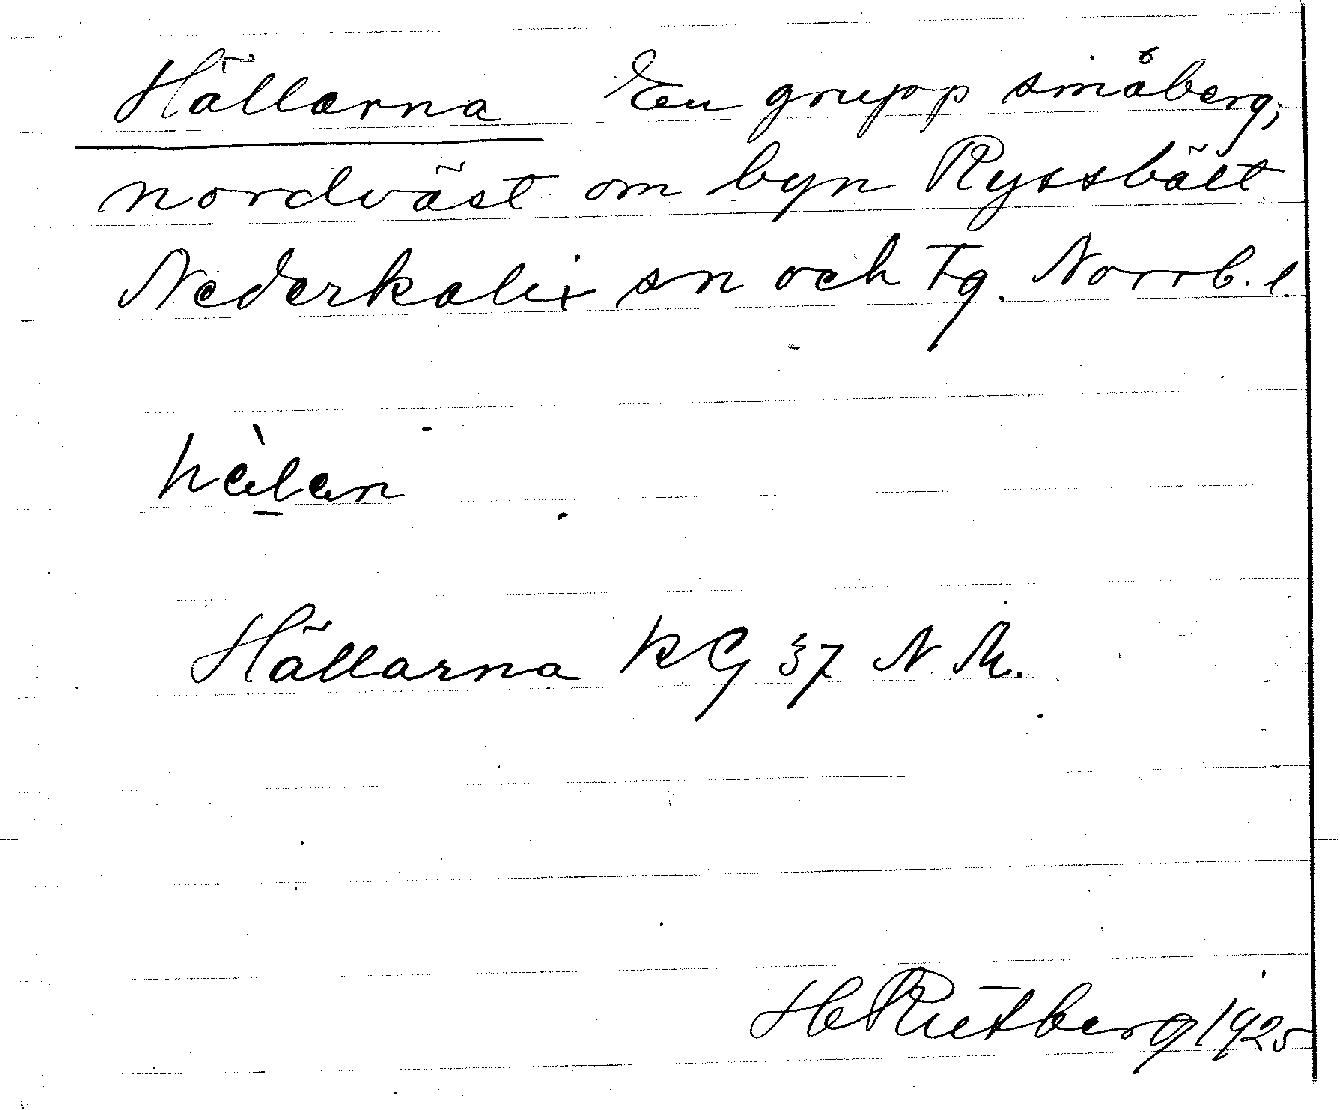 Hällarna En grupp småberg,
nordväst om byn Ryssbält
Nederkalix sn och tg. Norrb. l.
hèlan
Hällarna KG 37 N M.
H Rutberg 1925